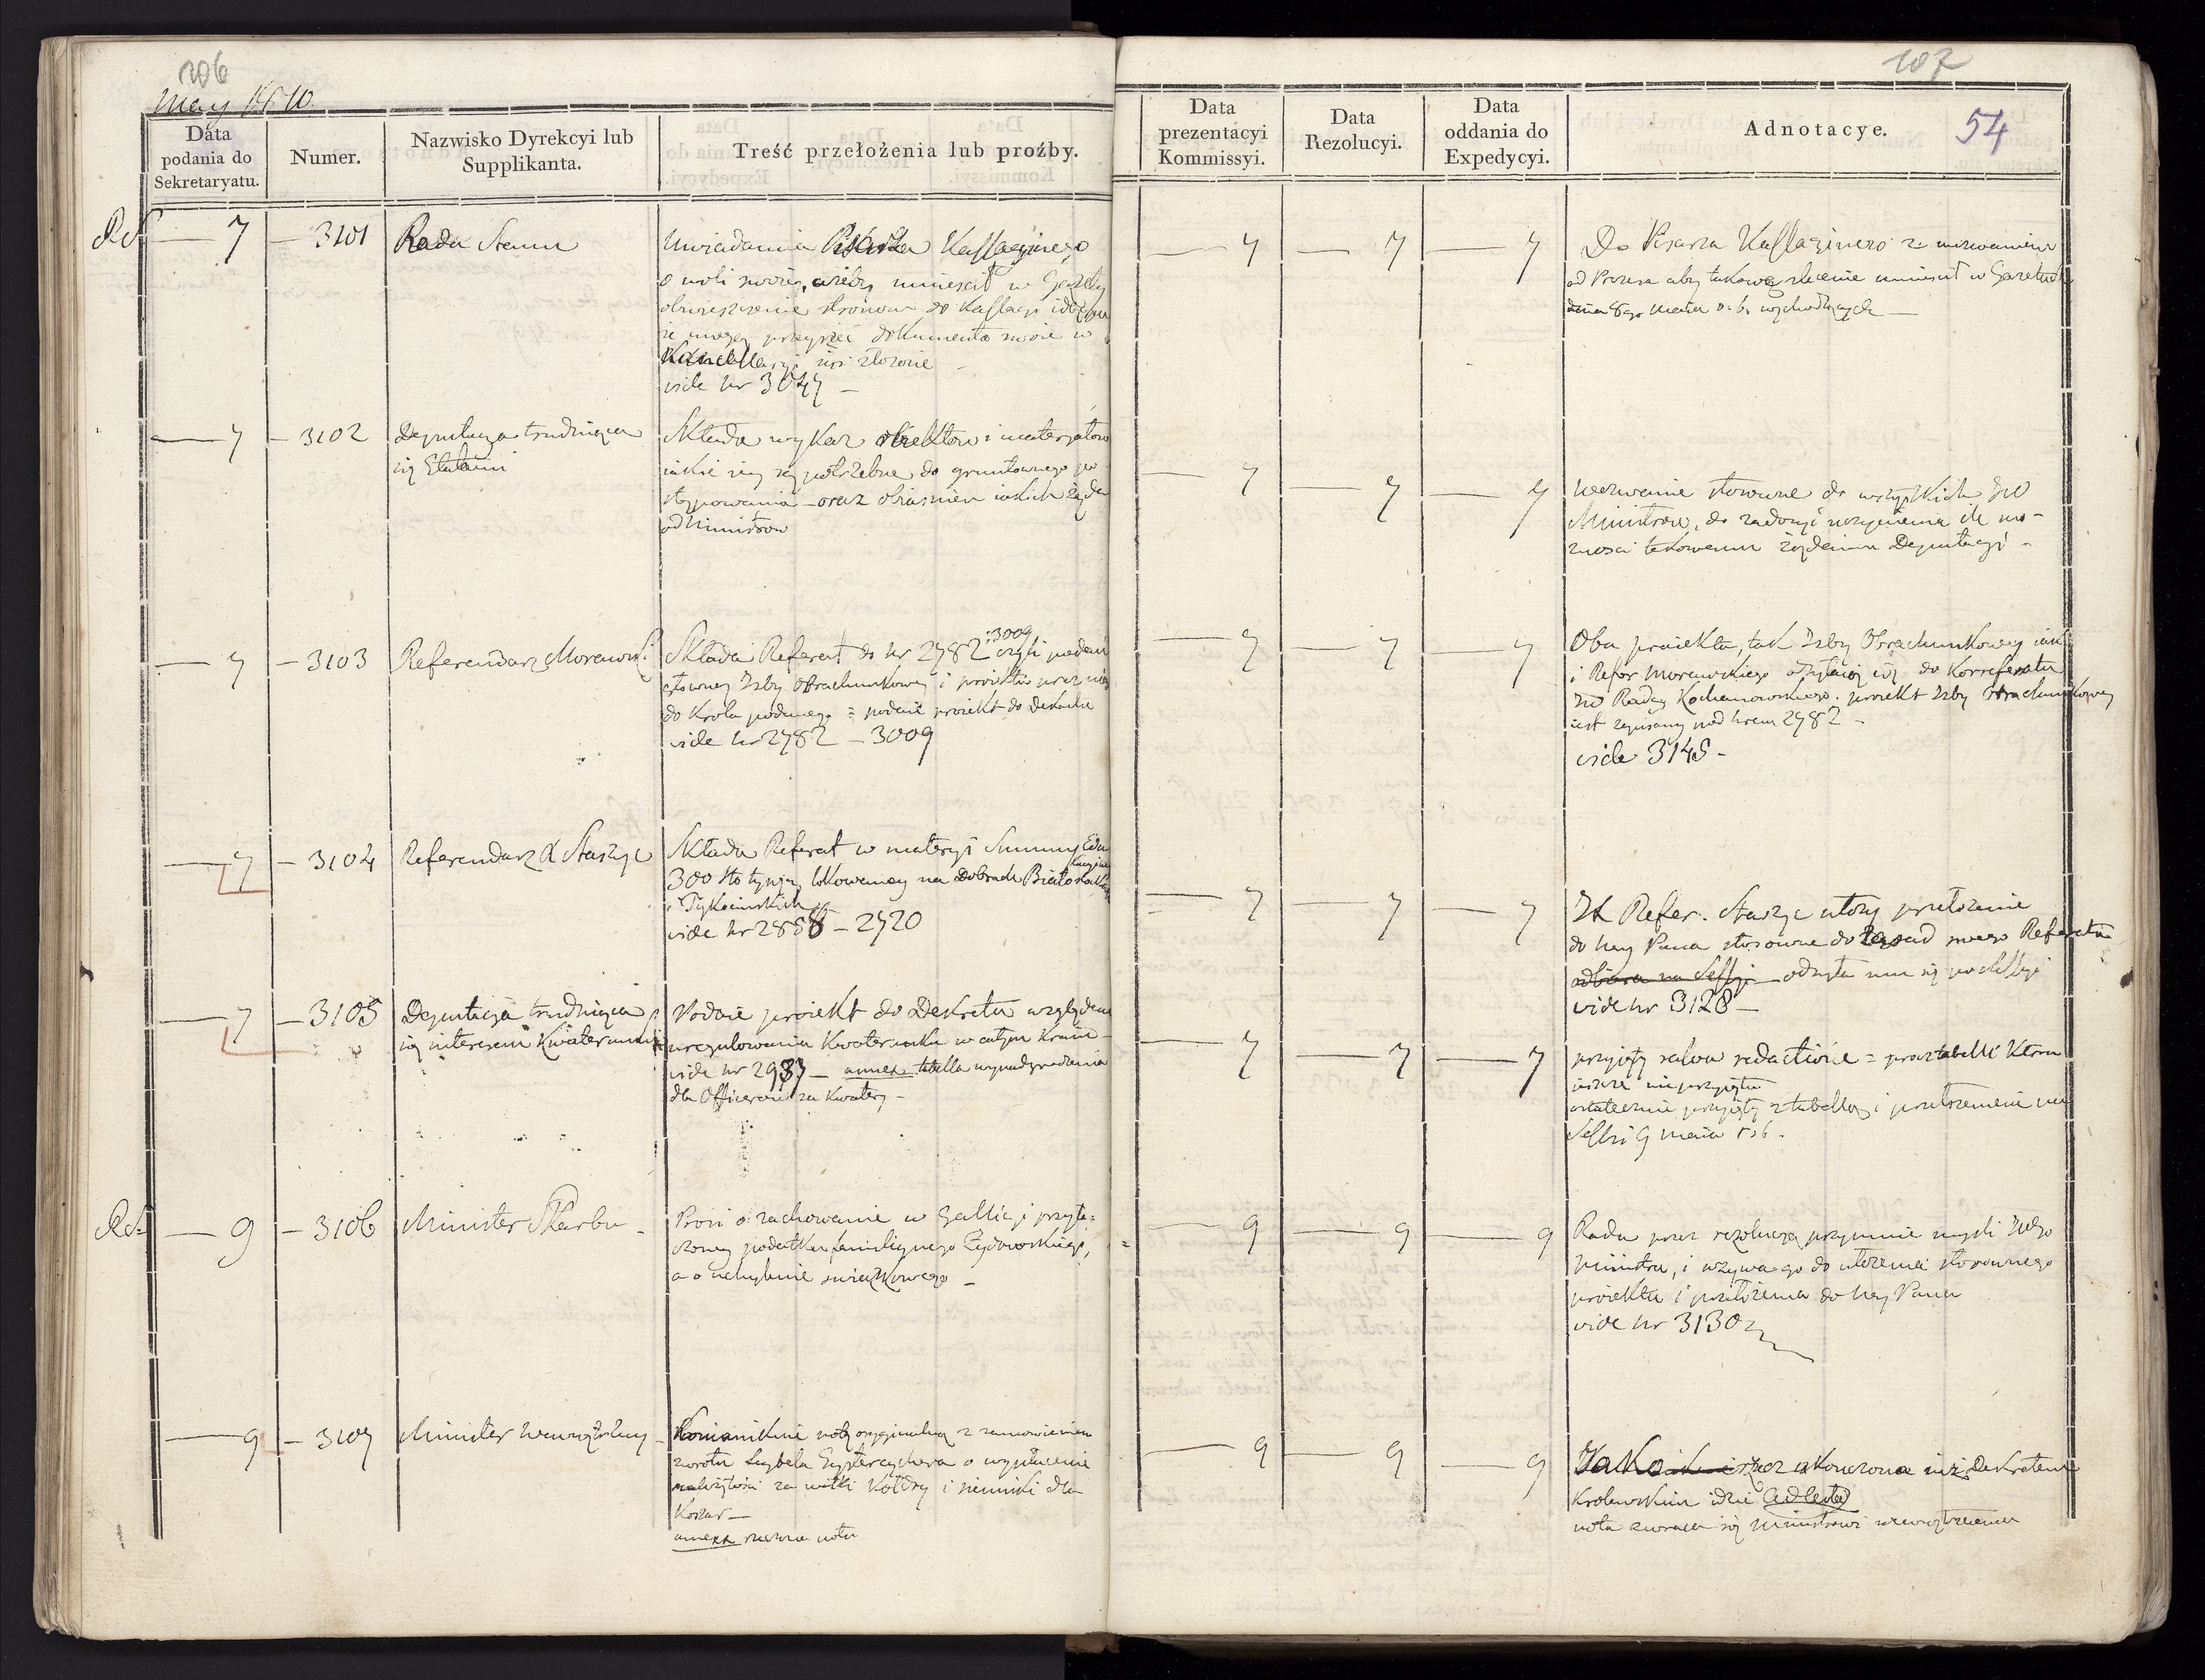 106
May 1810.
Data podania do Sekretaryatu.
Numer.
Nazwisko Dyrekcyi lub Supplikanta.
Treść przełożenia lub proźby.
7 — 3101
Rada Stanu
Uwiadamia Pisarza Kassacyinego
o woli swoiey, ażeby umieścił w Gazety
obwieszczenie stronom do Kassacyi idącym
że mogą przeyrzeć dokumenta swoie w
Kancellaryi iuż złożone
vide nr 3047 —
7 — 3102
Deputacya trudniąca
się Etatami
Składa wykaz obiektow i materyałow
iakie iey są potrzebne do gruntownego po
stępowania — oraz obiasnień iakich żąda
od Ministrow
7 — 3103
Referendarz Morawski
Składa Referat do nr 2782 : 3009 czyli podań
głowney Izby Obrachunkowey i proiektu przez nią
do Krola podanego = podaie proiekt do Dekretu
vide nr 2782 — 3009
7 — 3104
Referendarz X Staszyc
Składa Referat w materyi Summy Edukacyiney
300 sto tysięcy lokowaney na Dobrach Białostockich
i Tykocinskich
vide nr 2858 — 2920
7 — 3105
Deputacja trudniąca
się interesem Kwaterunku
Podaie proiekt do Dekretu względem
uregulowania Kwaterunku w całym Kraiu —
vide nr 2937 — annexa tabella wynadgrodzenia
dla Officerow za Kwatery —
9 — 3106
Minister Skarbu —
Prosi o zachowanie w Gallicji przyłą=
czoney podatku familijnego Żydowskiego,
a o uchylenie świeczkowego —
9 — 3107
Minister Wewnętrzny
Kommunikuie notę oryginalną z zamowieniem
zwrotu Leybela o wypłacenie
należytości za kołdry i sienniki dla
Koszar —
annexa rzeczona nota
107
54
Data prezentacyi Kommissyi.
Data Rezolucyi.
Data oddania do Expedycyi.
Adnotacye.
7 — 7 — 7
Do Pisarza Kassacyinego z wezwaniem
od Prezesa aby takowe zlecenie umiescił w Gazetach
dnia 8go Maia r. b. wychodzących —
7 — 7 — 7
Wezwanie stosowne do wszystkich JW
Ministrow, do zadosyć uczynienia ile mo-
zności takowemu żądaniu Deputacyi —
7 — 7 — 7
Oba proiekta, tak Izby Obrachunkowey iak
i Refer Morawskiego odsyłaią się do Korreferatu
JW Radcy Kochanowskiego. proiekt Izby Obrachunkowey
iest zapisany pod nrem 2782 —
vide 3145 —
7 — 7 — 7
JX Refer. Staszyc ułoży przełożenie
do Nay Pana stosowne do zasad swego Referatu
odbiera na Sessji odsyła mu się po Sessyi
vide nr 3128 —
7 — 7 — 7
przyięty salva redactione = prócz tabelli która
ieszcze nie przyięta
ostatecznie przyięty z tabellą i przełożeniem na
Sessji 9 maia r. b.
9 — 9 — 9
Rada przez rezolucyą przyimuie mysli JWgo
Ministra, i wzywa go do ułożenia stosownego
proiektu i przełożenia do Nay Pana
vide nr 3130
9 — 9 — 9
Jako rzecz ukończona iuż Dekretem
Krolewskim idzie ad acta
nota zwraca się Ministrowi wewnętrznemu